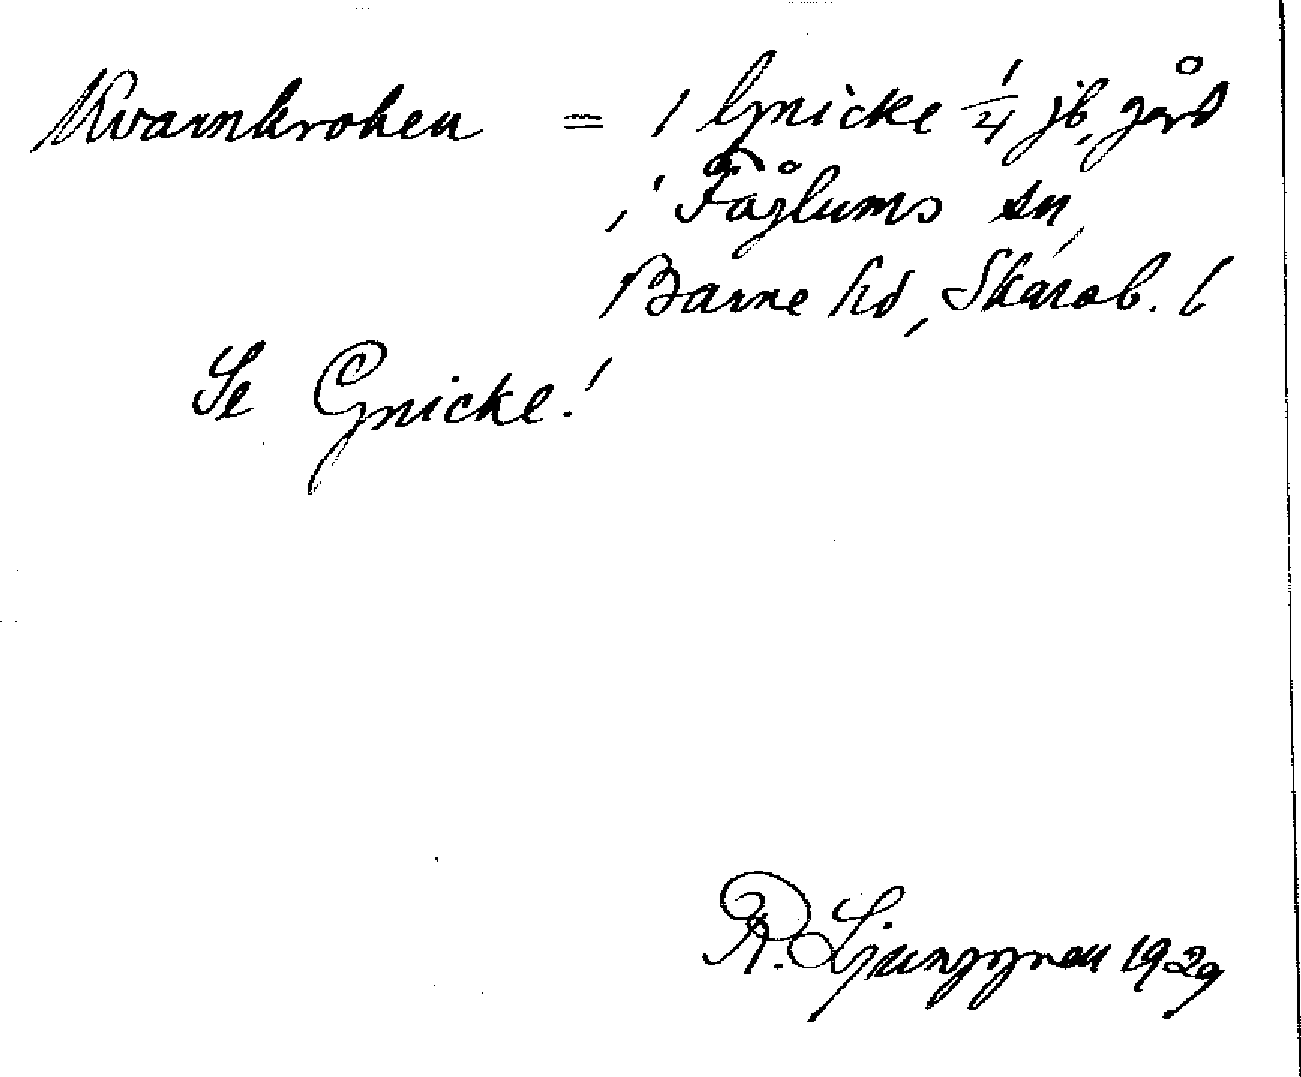 Kvarnkroken = 1 Gnicke 1/4 jb. gård
i Fåglums sn,
Barne hd, Skarab. l
Se Gnicke!
R. Ljunggren 1929